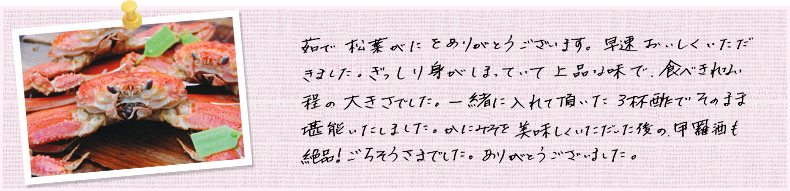 茹で松葉がにをありがとうございます。早速おいしくいただ
きました。ぎっしり身がしまっていて上品な味で、食べきれない
程の大きさでした。一緒に入れて頂いた3杯酢でそのまま
堪能いたしました。かにみそを美味しくいただいた後の、甲羅酒も
絶品！ごちそうさまでした。ありがとうございました。